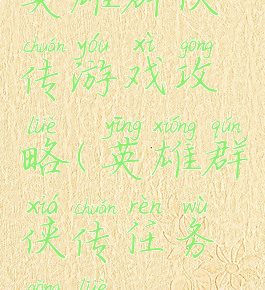 英雄群侠
chuán yóu xì gōng
传游戏攻
lüè yīng xióng qún
略(英雄群
xiá chuán rèn wù
侠传任务
gōng lüè